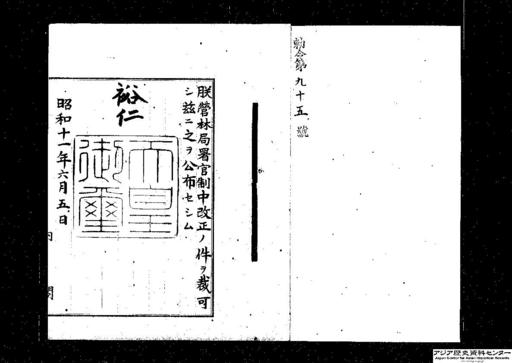 勅令第九十五號
朕營林局署官制中改正ノ件ヲ裁可
シ茲ニ之ヲ公布セシム
裕仁
天皇御璽
昭和十一年六月五日
内閣
アジア歴史資料センター
Japan Center for Asian Historical Records